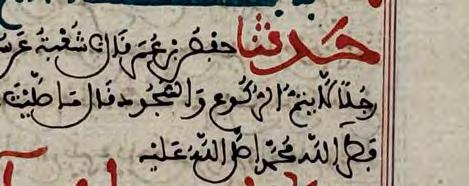 حدثنا حفص بن عمر قال شعبة عن س
رجلا لا يتم الركوع والسجود فقال ما صليت
فطر الله محمدا صلى الله عليه